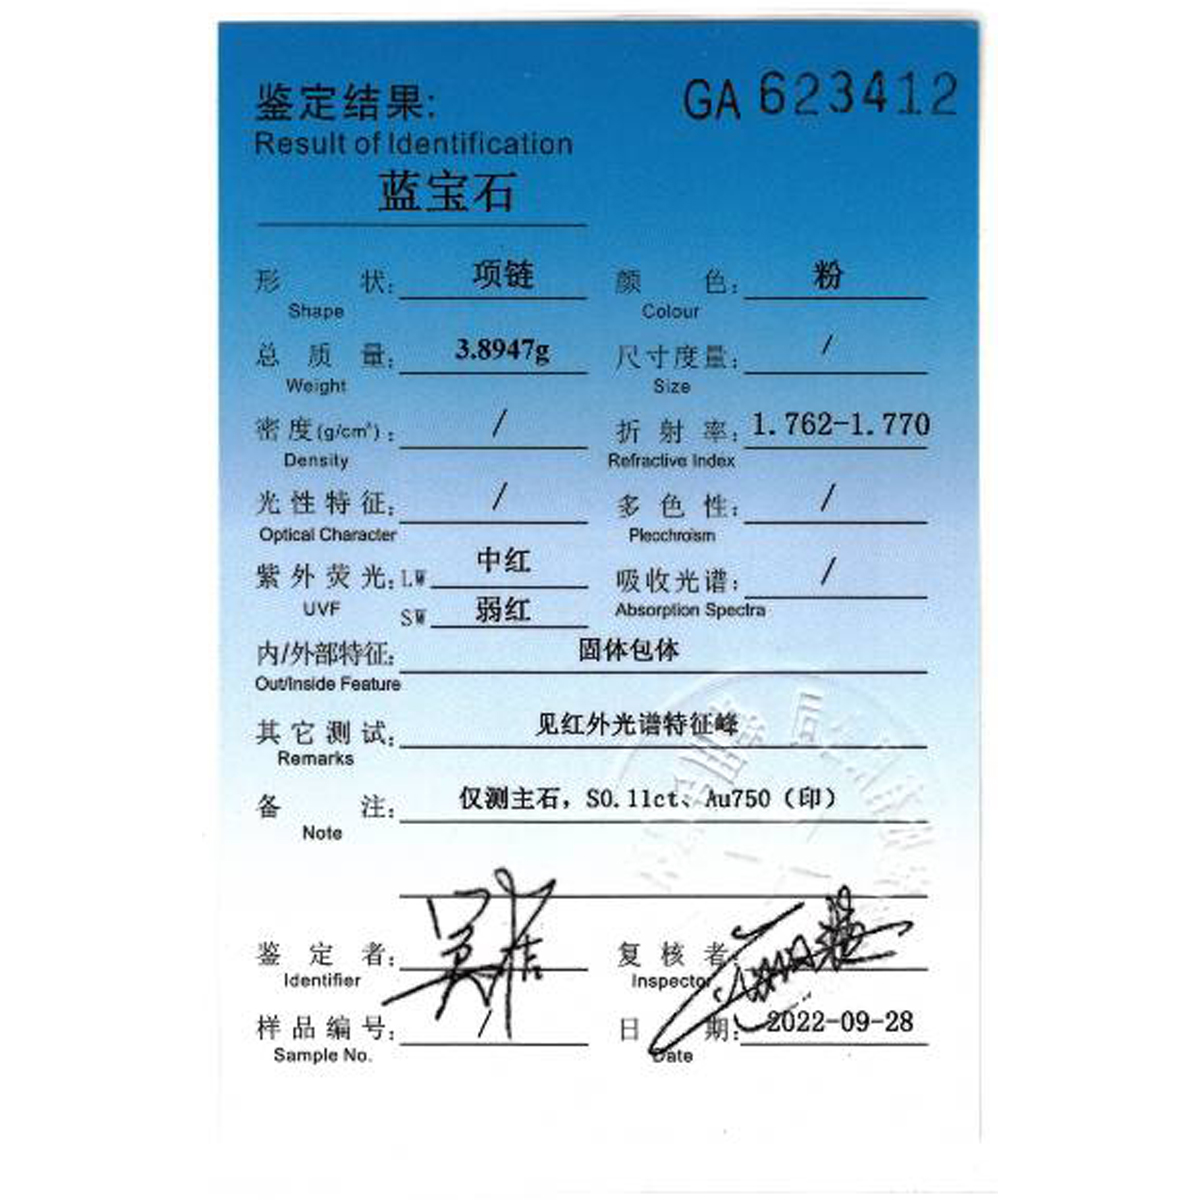 鉴定结果:
GA 623412
Result of Identification
蓝宝石
形 状: 项链 颜 色: 粉
Shape Colour
总 质 量: 3.8947g 尺寸度量: /
Weight Size
密度(g/cm³): / 折 射 率: 1.762-1.770
Density Refractive Index
光性特征: / 多 色 性: /
Optical Character Pleochroism
紫外荧光: LW 中红 吸收光谱: /
UVF SW 弱红 Absorption Spectra
内/外部特征: 固体包体
Out/Inside Feature
其它测试: 见红外光谱特征峰
Remarks
备 注: 仅测主石, S0.11ct、Au750 (印)
Note
鉴 定 者: 复 核 者:
Identifier Inspector
样品编号: / 日 期: 2022-09-28
Sample No. Date